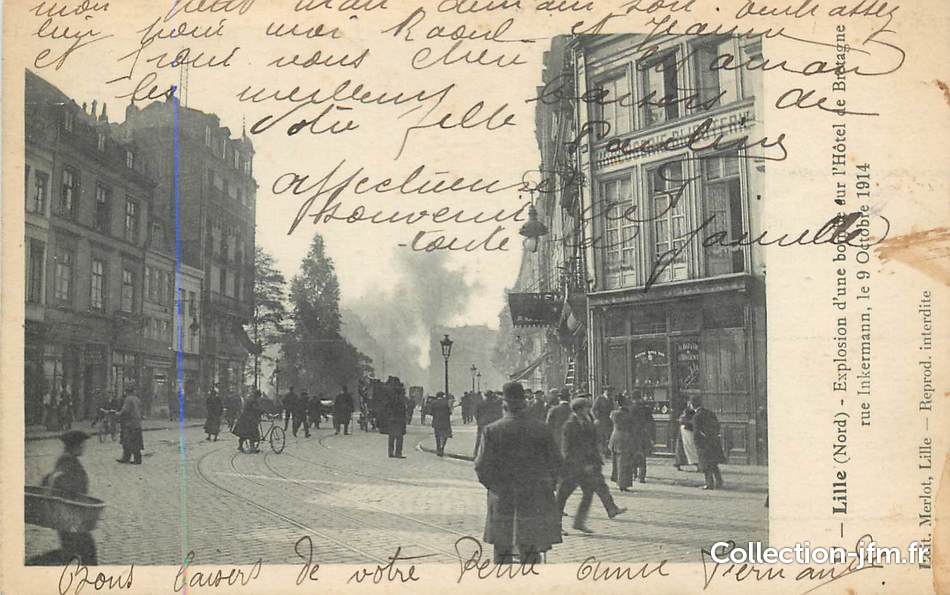 mon petit mari demain soir. embrassez
bien pour moi Raoul et Jeanne
et pour vous cher Maman
les meilleurs baisers de
votre fille Pauline
affectueuse
souvenir de
toute la famille
ORFÈVRERIE
Bons baisers de votre Petite amie Fernande
— Lille (Nord) - Explosion d'une bombe sur l'Hôtel de Bretagne
rue Inkermann, le 9 Octobre 1914
Edit. Merlot, Lille — Reprod. interdite
www.Collection-jfm.fr